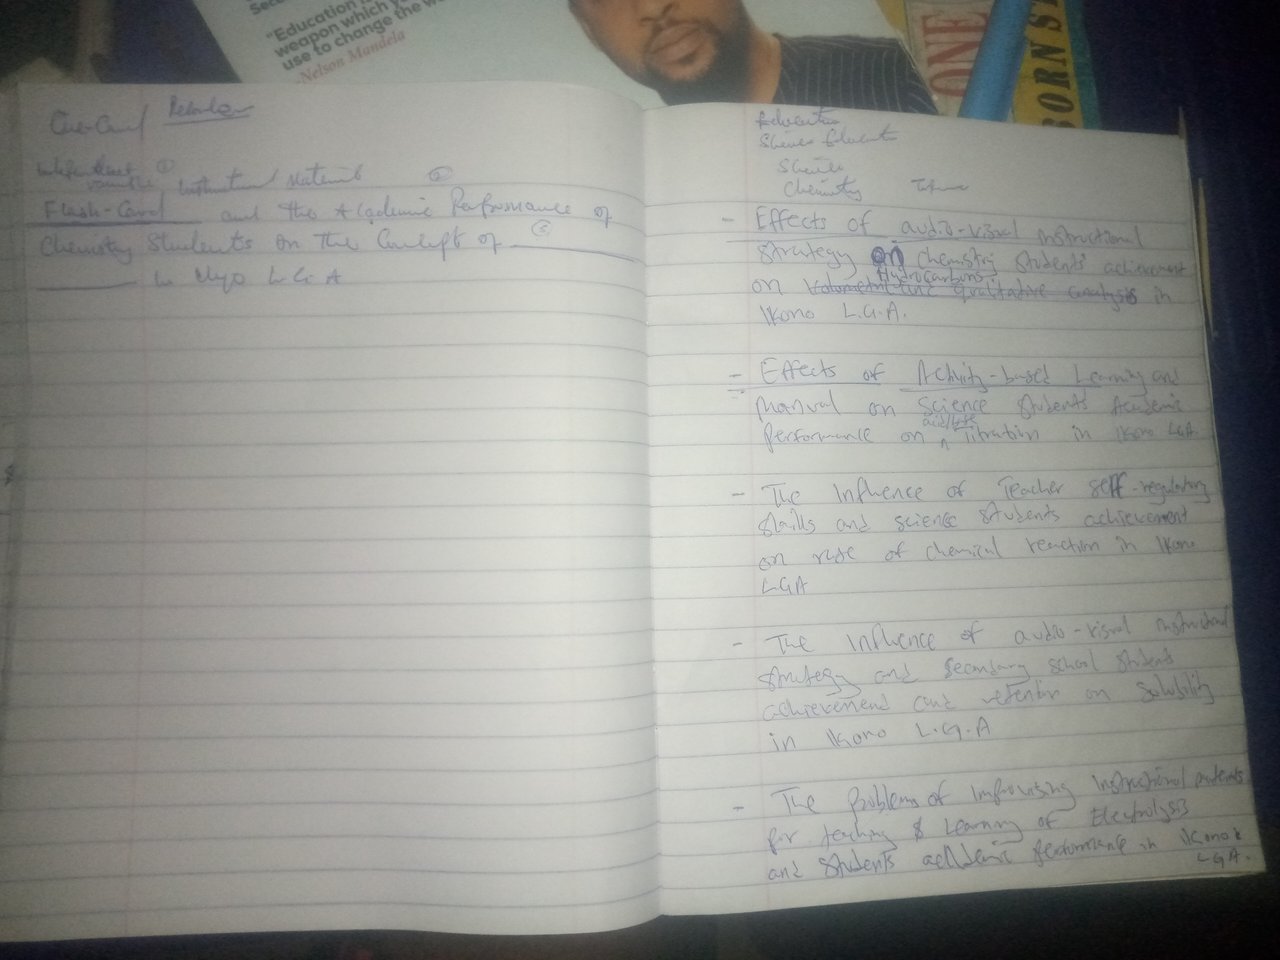 "Education
weapon which
use to change the
-Nelson Mandela
ONE
BORN
Independent
variable ① Instructional Materials ②
Flash-Card and the Academic Performance of
Chemistry Students on the Concept of ③
in Uyo L.G.A
Education
Science Education
Science
Chemistry
- Effects of audio-visual instructional
strategy on chemistry students' achievement
Hydrocarbons
on Volumetric and qualitative analysis in
Ikono L.G.A.
- Effects of Activity-based Learning and
Manual on Science Students Academic
acid/base
Performance on Titration in Ikono LGA
- The Influence of Teacher self-regulatory
skills and science students achievement
on rate of chemical reaction in Ikono
LGA
- The Influence of audio-visual instructional
strategy and secondary school students
achievement and retention on Solubility
in Ikono L.G.A
- The Problems of Improvising Instructional materials
for teaching & Learning of Electrolysis
and Students academic performance in Ikono
LGA.